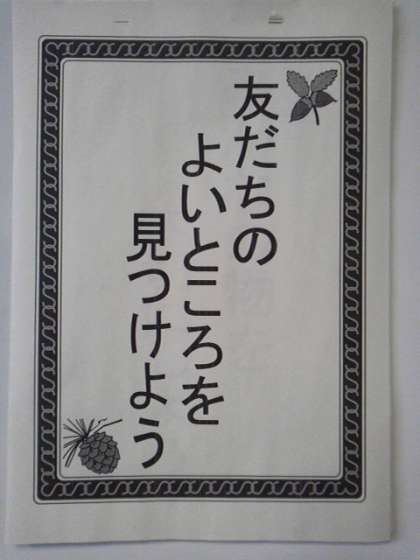 友だちの
よいところを
見つけよう